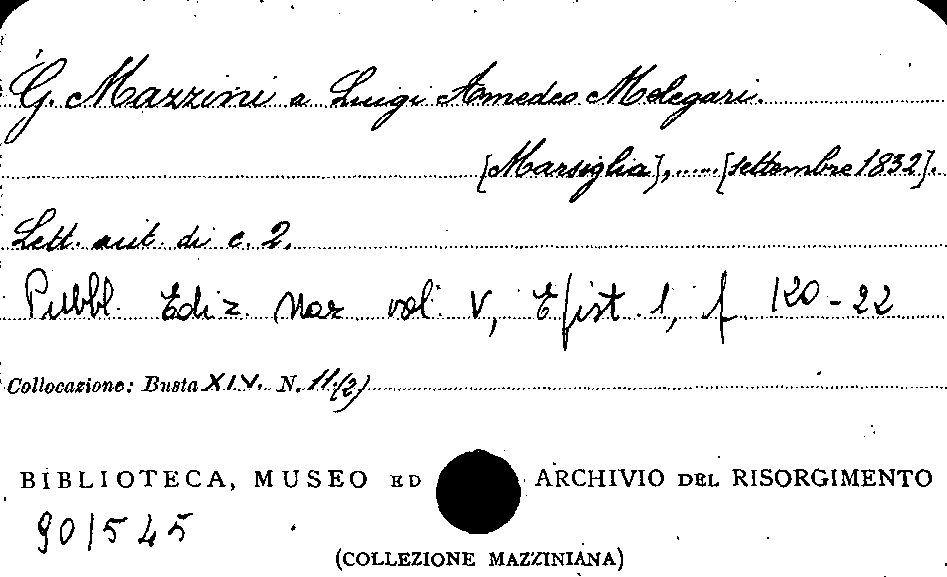 G. Mazzini a Luigi Amedeo Melegari.
[Marsiglia],...... [settembre 1832].
Lett. aut. di c. 2.
Pubbl. Ediz. Naz. vol. V, Epist. 1, p. 120-22
Collocazione: Busta XIV. N. 11.(2)
BIBLIOTECA, MUSEO ED ARCHIVIO DEL RISORGIMENTO
90/545
(COLLEZIONE MAZZINIANA)